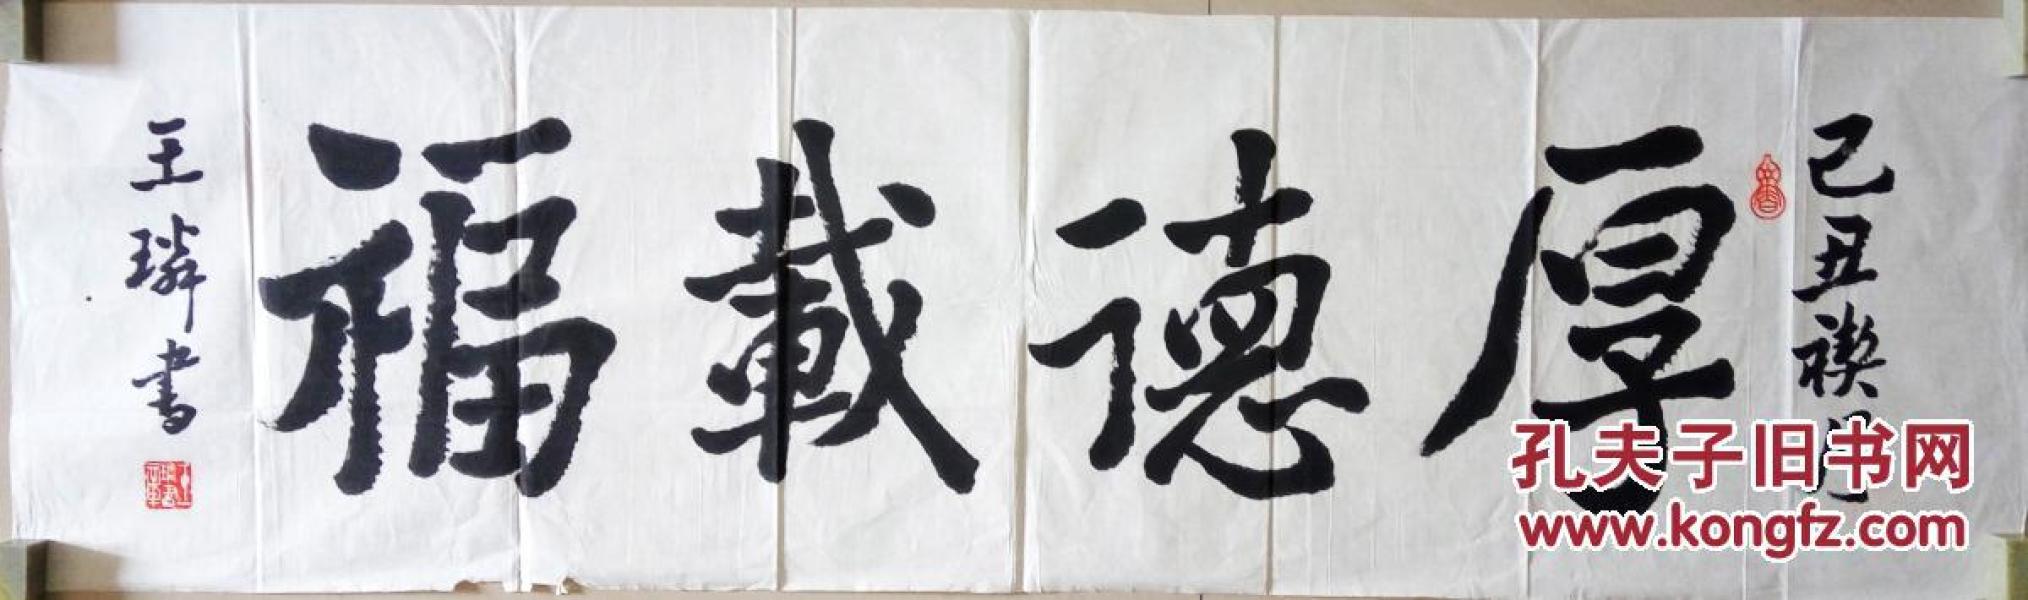 己丑禊月
厚德載福
王璘書
孔夫子旧书网
www.kongfz.com